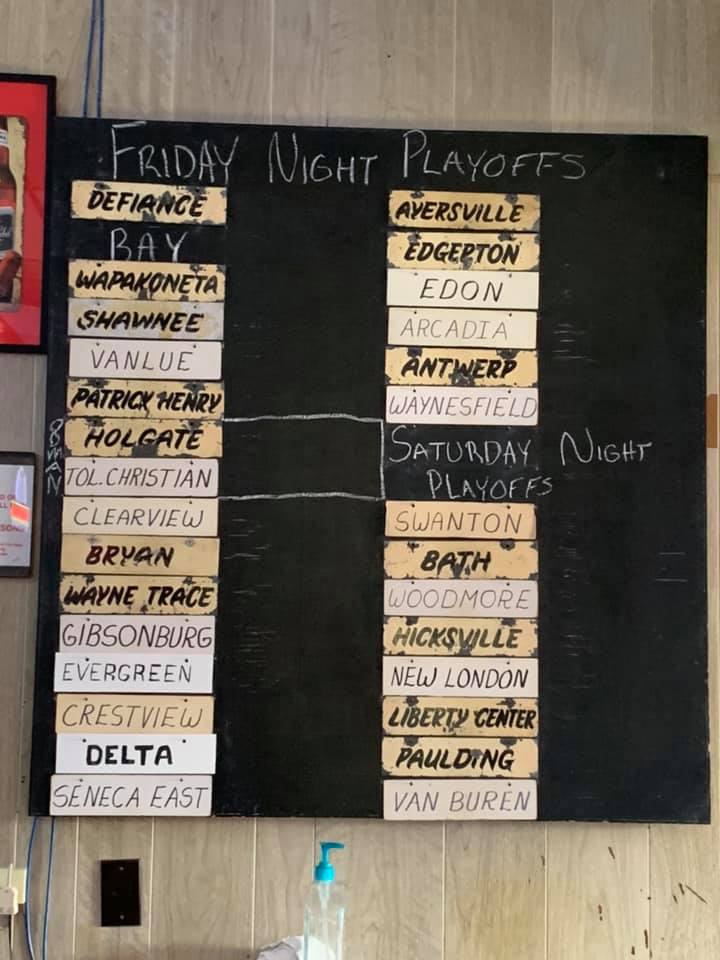 FRIDAY NIGHT PLAYOFFS
DEFIANCE
BAY
WAPAKONETA
SHAWNEE
VANLUE
PATRICK HENRY
8 MAN
HOLGATE
TOL. CHRISTIAN
CLEARVIEW
BRYAN
WAYNE TRACE
GIBSONBURG
EVERGREEN
CRESTVIEW
DELTA
SENECA EAST
AYERSVILLE
EDGERTON
EDON
ARCADIA
ANTWERP
WAYNESFIELD
SATURDAY NIGHT
PLAYOFFS
SWANTON
BATH
WOODMORE
HICKSVILLE
NEW LONDON
LIBERTY CENTER
PAULDING
VAN BUREN